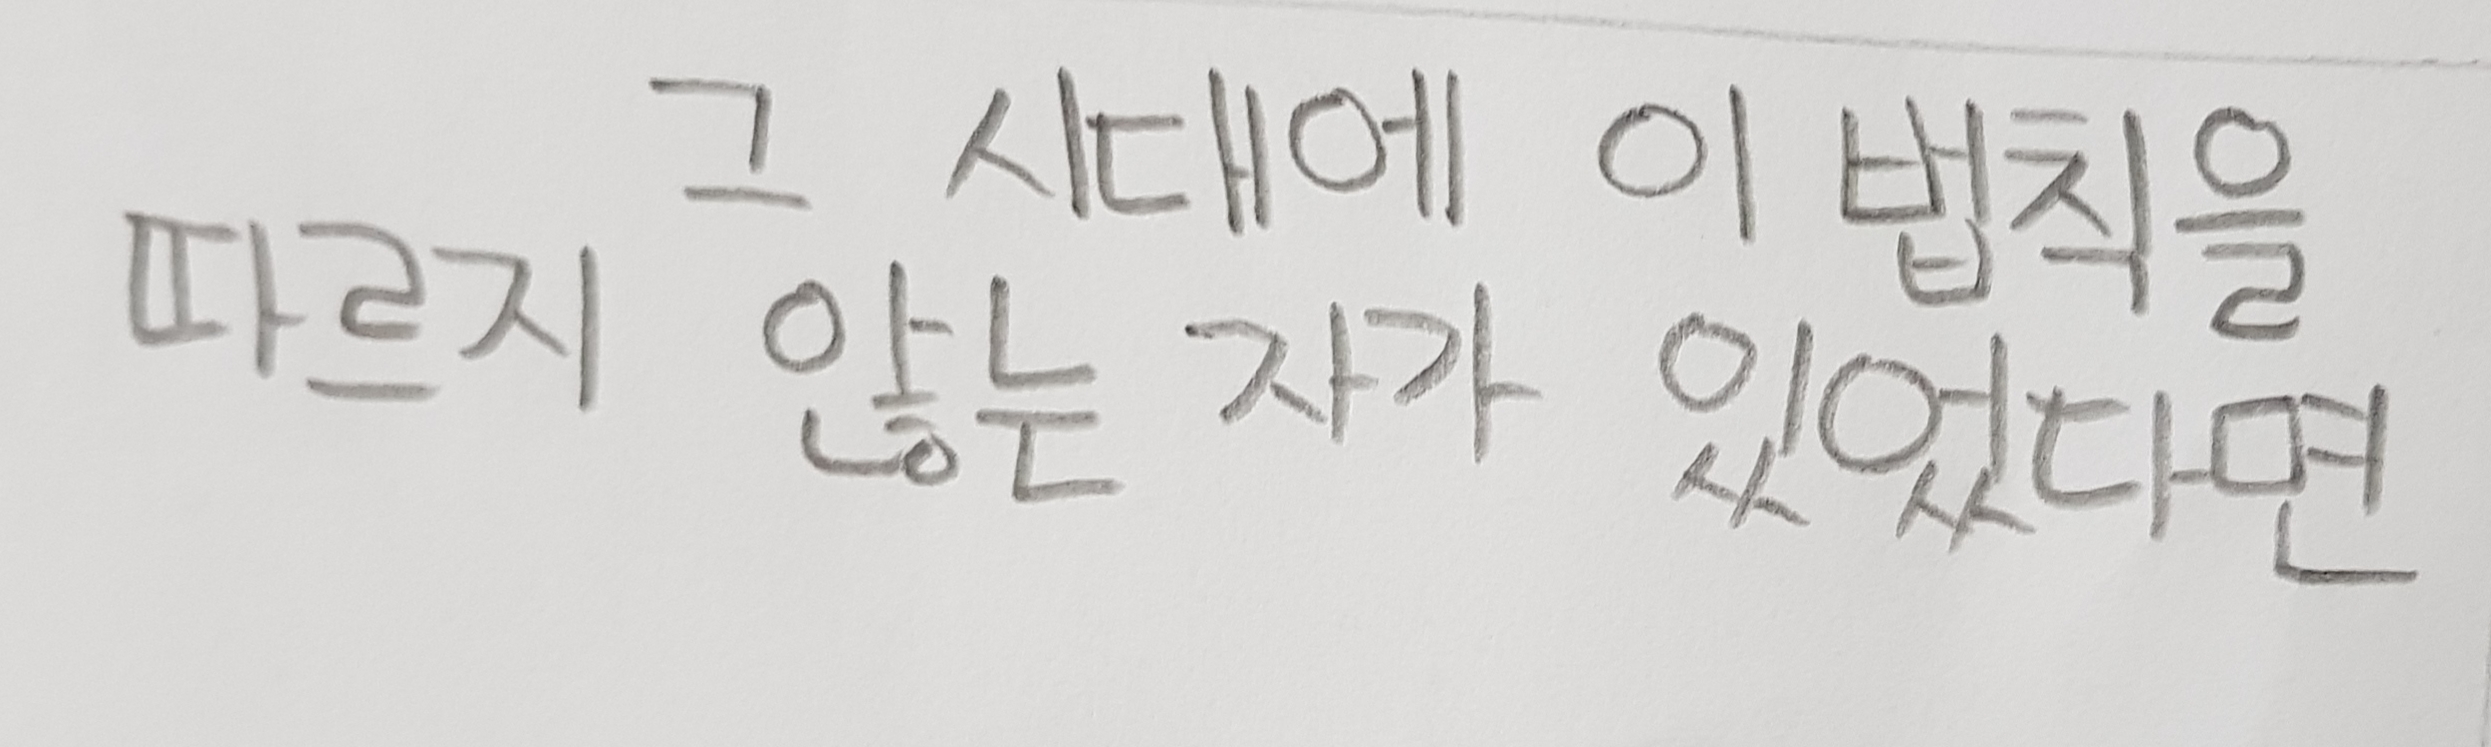 그 시대에 이 법칙을
따르지 않는 자가 있었다면